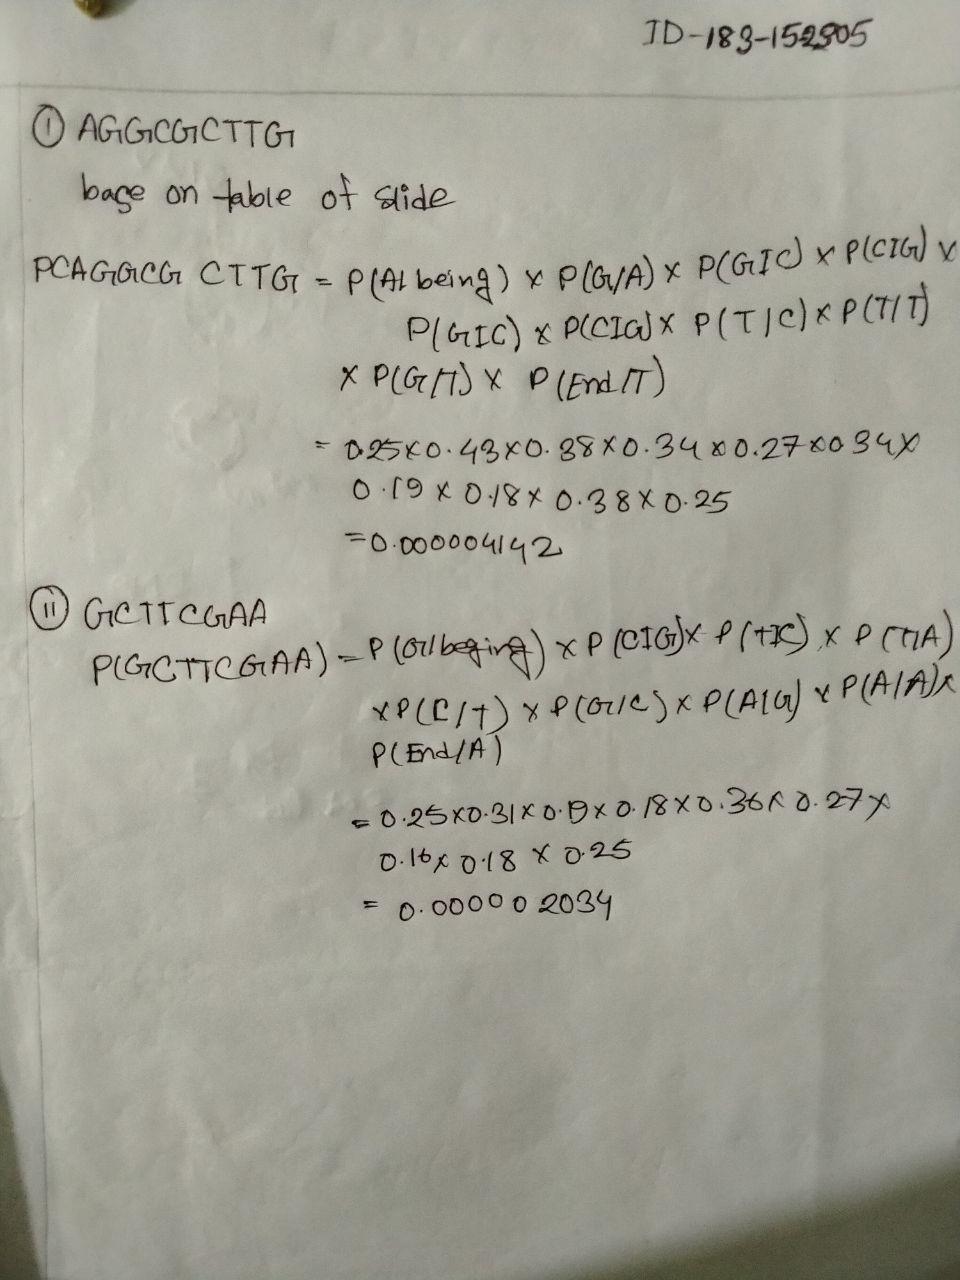 ID-183-152905
① AGGCGCTTG
base on table of slide
PCAGGCG CTTG = P(A| being) x P(G/A) x P(G|C) x P(C|G) x
P(G|C) x P(C|G) x P(T|C) x P(T/T)
x P(G/T) x P(End/T)
= 0.25x0.43x0.38x0.34x0.27x034x
0.19 x 0.18 x 0.38 x 0.25
=0.000004142
⑪ GCTTCGAA
P(GCTTCGAA) = P(G|beging) x P(C|G)x P(T|C) x P(T|A)
x P(C/T) x P(G/C) x P(A|G) x P(A/A)x
P(End/A)
= 0.25x0.31x0.19x0.18x0.36x0.27x
0.16x 0.18 x 0.25
= 0.000002034